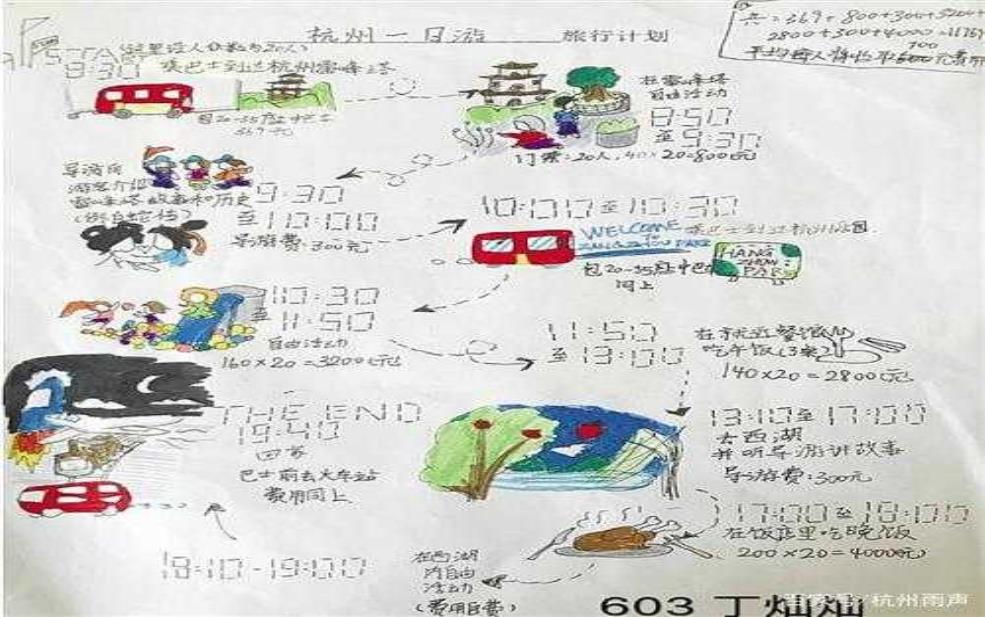 杭州一日游 旅行计划
共:369+800+300+3200+
2800+300+4000=11769
700
START
(这里设人份数为20人)
8:30 乘巴士到达杭州雷峰塔
包20-35座中巴士
369元
在雷峰塔
自由活动
8:50
至
9:30
门票:20人,40×20=800元
导游向
游客介绍
雷峰塔故事和历史
9:30
至
10:00
导游费:300元
10:00至10:30
WELCOME
TO
HANGZHOU PARK
乘巴士到达杭州乐园.
包20-35座中巴
同上
HANG
ZHOU
PARK
10:30
至
11:50
自由活动
160×20=3200(元)
11:50
至13:00
在就近餐馆
吃午饭
140×20=2800元
13:10至17:00
去西湖
并听导游讲故事
导游费:300元
17:00至18:00
在饭店里吃晚饭
200×20=4000(元)
在西湖
内自由
活动
(费用自费)
18:10-19:00
THE END
19:40
回家
巴士前去火车站
费用同上
603 丁灿灿
百家号/杭州雨声